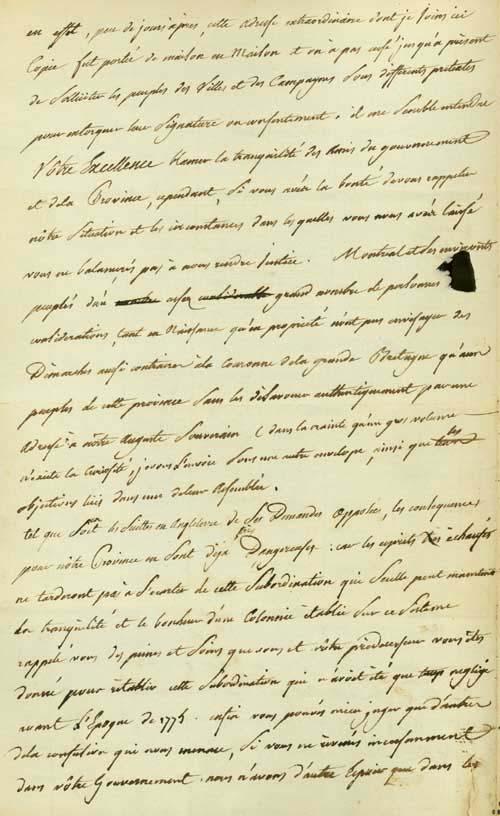 en effet, peu de jours après, cette adresse extraordinaire dont je joins ici
Copie fut portée de maison en Maison et on a pas cessé jusqu'à présent
de Solliciter les peuples des Villes et des Campagnes Sous differents pretextes
pour extorquer leur Signature ou consentement. il me Semble entendre
Vôtre Excellence blamer la tranquilité des Amis du gouvernement
et dela Province, cependant, Si vous avéz la bonté devous rappeler
nôtre Situation et les circonstances dans les quelles vous nous avéz laissé
vous ne balancerés pas à nous rendre Justice. Montreal et Ses environts
peuplés d'un assés considerable grand nombre de personnes
considerations tant en Naissance qu'en propriété n'ont pus envisager des
Démarches aussi contraires à la Couronne dela grande Bretagne qu'aux
peuples de cette province Sans les désavouer authentiquement par une
adresse à nôtre Auguste Souverain (dans la crainte qu'un gros volume
n'excite la Curiosité, je vous l'envoie Sous une autre envelope, ainsi que les
objections liés dans une de leur Assemblée.
tel que Soit les Suittes en Angleterre de Ses Demandes Opposées, les consequences
pour nôtre Province en Sont déja Dangereuses: car les esprits échaufés
ne tarderont pas à S'écarter de cette Subordination qui Seulle peut maintenir
La tranquilité et le bonheur d'une Colonnie établie Sur ce Sistême
rappelé vous des peines et Soins que vous et vôtre prédécesseur vous êtes
donné pour rétablir cette Subordination qui n'avoit été que trop négligé
avant L'Epoque de 1775. enfin vous pouvés mieux juger que d'autre
dela confusion qui nous menace, Si vous ne revenés incessamment
dans vôtre Gouvernement. nous n'avons d'autre Espoir que dans les